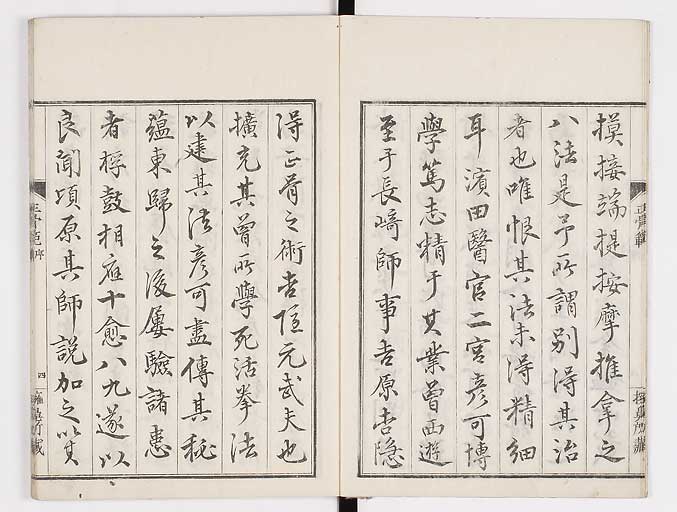 摸接端提按摩推拿之
八法是予所謂別得其治
者也唯恨其法未得精細
耳濱田醫官二宮彥可博
學篤志精于其業曾西遊
至于長崎師事吉原杏隱
得正骨之術杏隱元武夫也
擴充其曾所學死活拳法
以建其法彥可盡傳其秘
蘊東歸之後屢驗諸患
者桴鼓相應十愈八九遂以
良聞頃原其師說加之以其
正骨範
正骨範 序
四